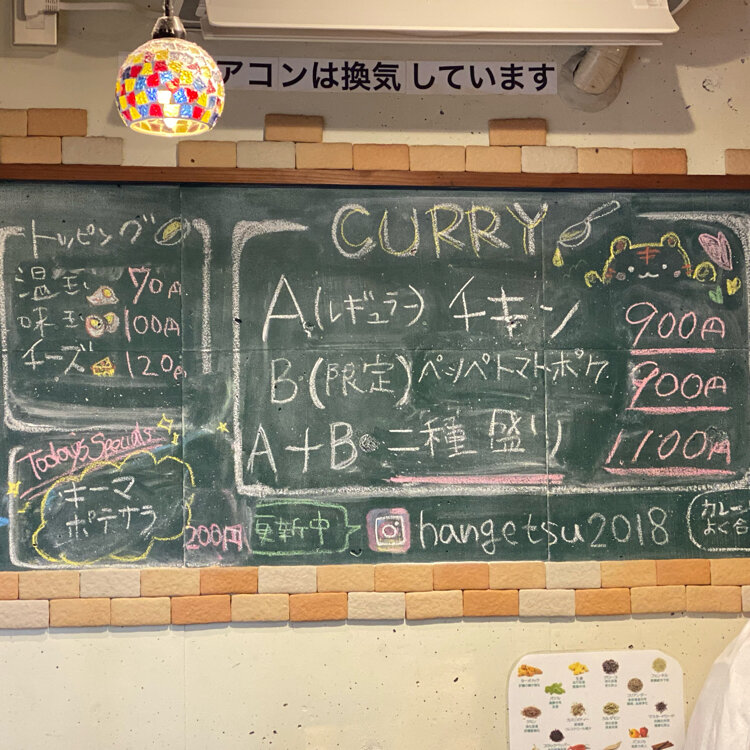 アコンは換気しています
トッピング
温玉 70円
味玉 100円
チーズ 120円
Today's Specials
キーマ
ポテサラ
200円
CURRY
A(レギュラー) チキン 900円
B(限定) ペッパートマトポーク 900円
A+B 二種盛り 1,100円
更新中 hangetsu2018
カレー
よく合